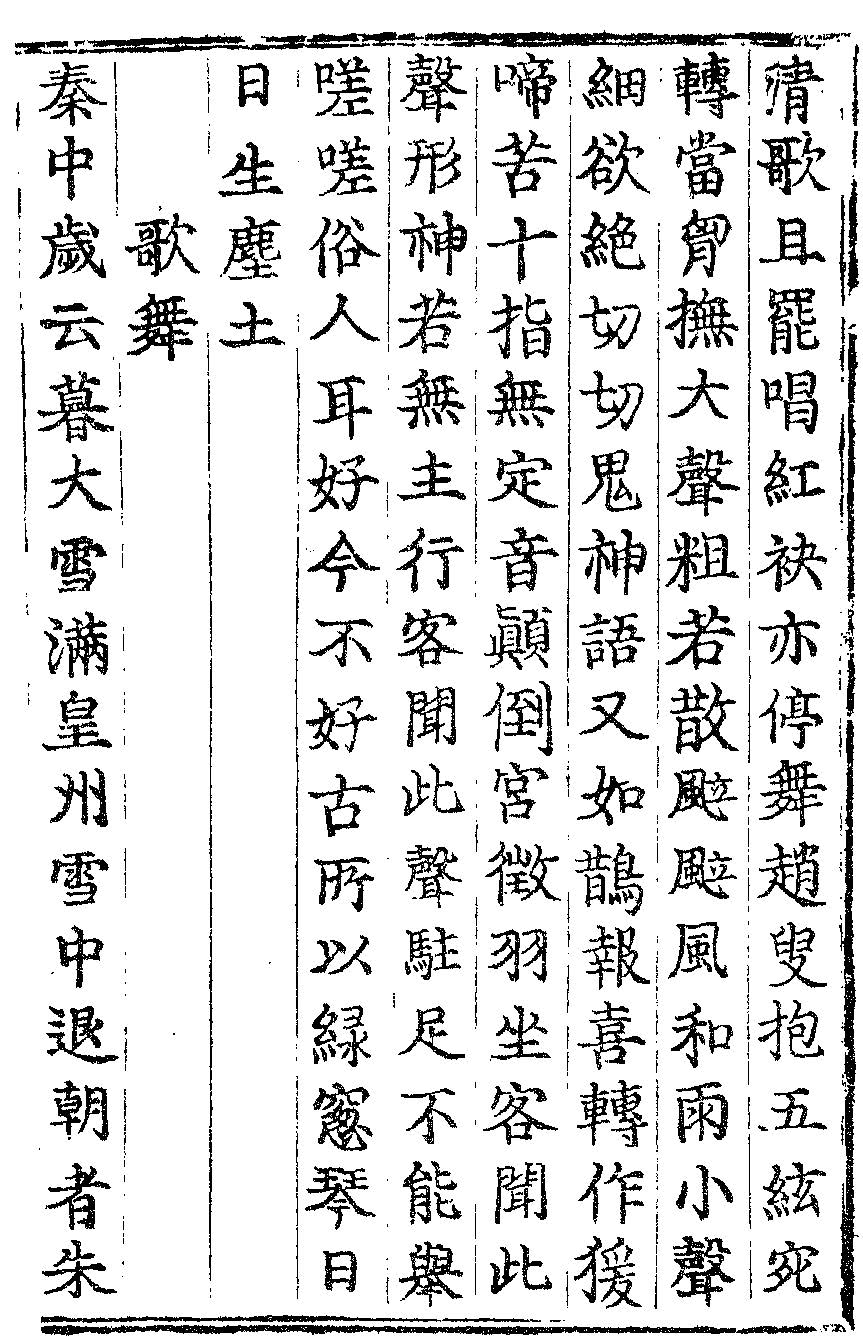 清歌且罷唱紅袂亦停舞趙叟抱五絃宛
轉當胷撫大聲粗若散颯颯風和雨小聲
細欲絶切切鬼神語又如鵲報喜轉作猨
啼苦十指無定音顚倒宮徵羽坐客聞此
聲形神若無主行客聞此聲駐足不能舉
嗟嗟俗人耳好今不好古所以緑窻琴日
日生塵土
歌舞
秦中歲云暮大雪滿皇州雪中退朝者朱